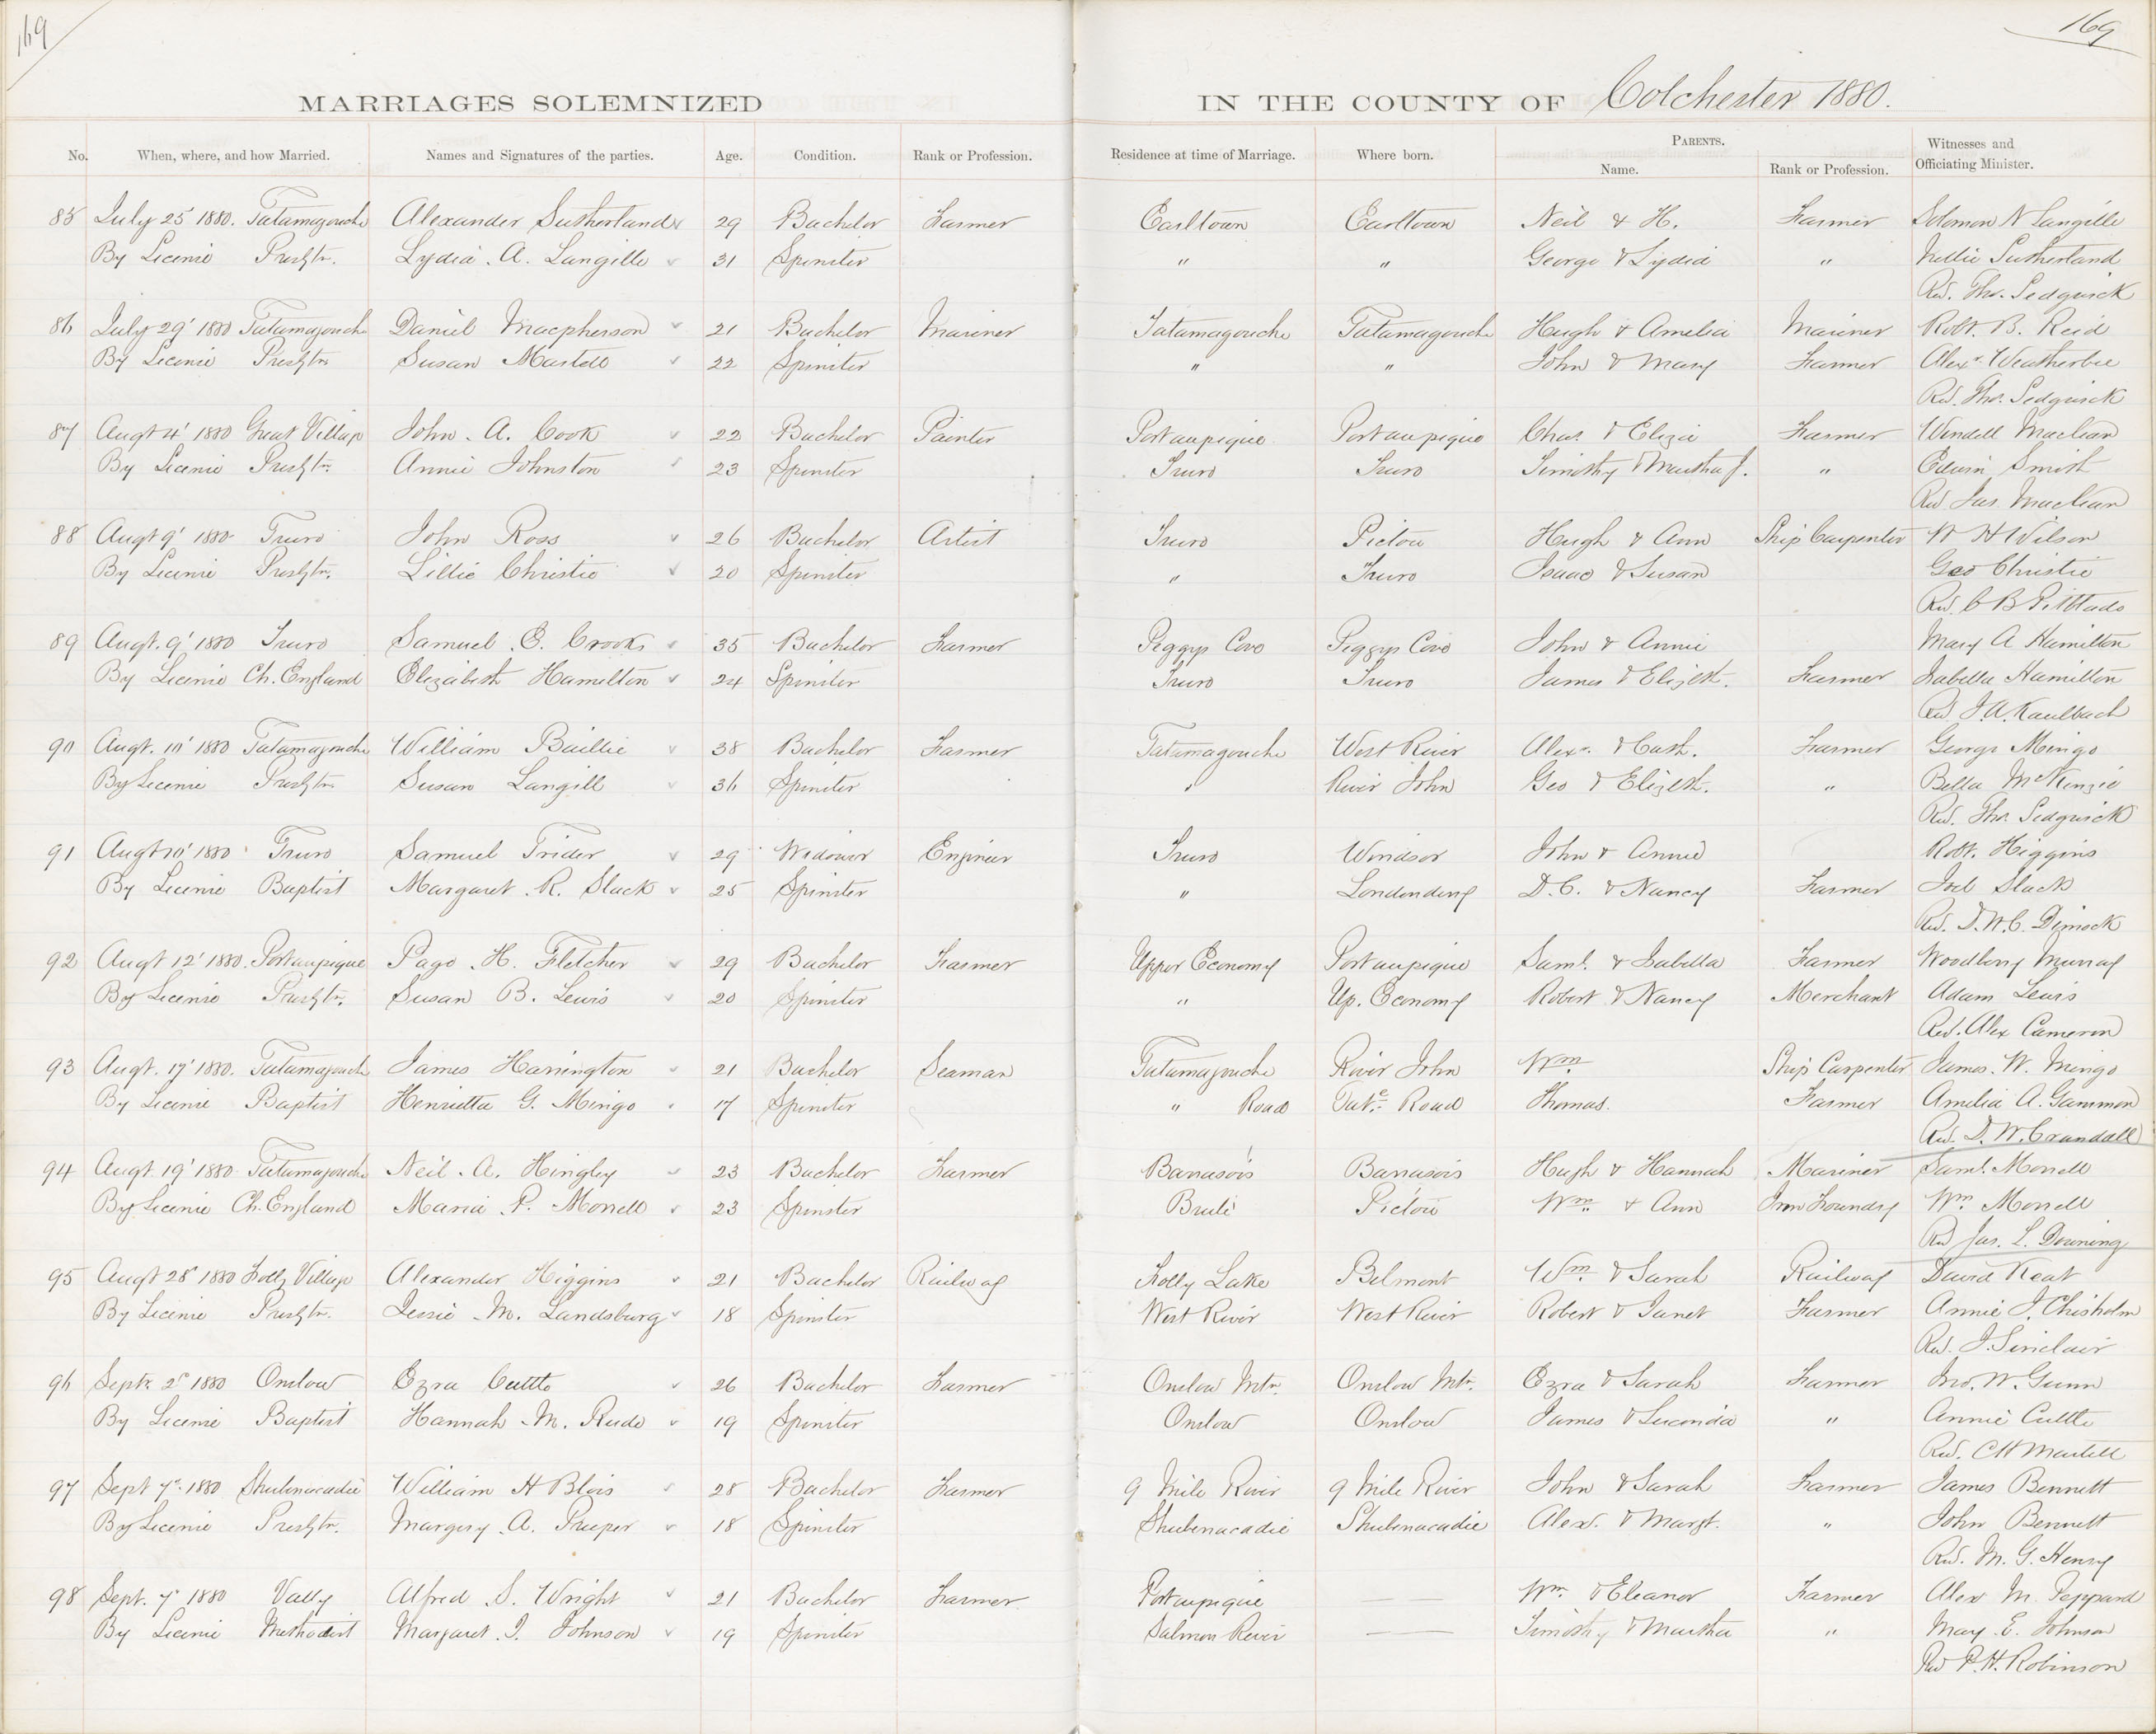 169
169
MARRIAGES SOLEMNIZED IN THE COUNTY OF Colchester 1880.
No. When, where, and how Married. Names and Signatures of the parties. Age. Condition. Rank or Profession. Residence at time of Marriage. Where born. PARENTS. Name. Rank or Profession. Witnesses and Officiating Minister.
85 July 25 1880. Tatamagouche Alexander Sutherland 29 Bachelor Farmer Earltown Earltown Neil & H. Farmer Solomon N Langille
By Licence Presbtn. Lydia A. Langille 31 Spinster " " George & Lydia " Nellie Sutherland
Rev. Thos. Sedgwick
86 July 29' 1880 Tatamagouche Daniel Macpherson 21 Bachelor Mariner Tatamagouche Tatamagouche Hugh & Amelia Mariner Robt. B. Reid
By Licence Presbtn Susan Martell 22 Spinster " " John & Mary Farmer Alexr. Weatherbie
Rev. Thos. Sedgwick
87 Augt 4' 1880 Great Village John A. Cook 22 Bachelor Painter Portaupique Portaupique Chas. & Eliza Farmer Wendell Maclean
By Licence Presbtn. Annie Johnston 23 Spinster Truro Truro Timothy & Martha J. " Edwin Smith
Rev Jas. Maclean
88 Augt 9' 1880 Truro John Ross 26 Bachelor Artist Truro Pictou Hugh & Ann Ship Carpenter W H Wilson
By Licence Presbtn. Lillie Christie 20 Spinster " Truro Isaac & Susan Geo Christie
Rev. C B Pitblado
89 Augt. 9' 1880 Truro Samuel E. Crooks 35 Bachelor Farmer Peggys Cove Peggys Cove John & Annie Mary A Hamilton
By Licence Ch. England Elizabeth Hamilton 24 Spinster Truro Truro James & Elizbth. Farmer Isabella Hamilton
Rev J. A. Kaulbach
90 Augt. 10' 1880 Tatamagouche William Baillie 38 Bachelor Farmer Tatamagouche West River Alexr. & Cath. Farmer George Mingo
By Licence Presbtn Susan Langill 36 Spinster " River John Geo & Elizbth. " Bella McKenzie
Rev. Thos. Sedgwick
91 Augt 10' 1880 Truro Samuel Trider 29 Widower Engineer Truro Windsor John & Annie Robt. Higgins
By Licence Baptist Margaret R. Slack 25 Spinster " Londonderry D. C. & Nancy Farmer Joel Slack
Rev. D. W. C. Dimock
92 Augt 12' 1880. Portaupique Page H. Fletcher 29 Bachelor Farmer Upper Economy Portaupique Saml. & Isabella Farmer Woodbery Murray
By Licence Presbtn. Susan B. Lewis 20 Spinster " Up. Economy Robert & Nancy Merchant Adam Lewis
Rev. Alex Cameron
93 Augt. 17' 1880. Tatamagouche James Harrington 21 Bachelor Seaman Tatamagouche River John Wm Ship Carpenter James. W. Mingo
By Licence Baptist Henrietta G. Mingo 17 Spinster " Road Tate Road Thomas. Farmer Amelia A. Gammon
Rev. D. W. Crandall
94 Augt 19' 1880 Tatamagouche Neil A. Hingley 23 Bachelor Farmer Barrasois Barrasois Hugh & Hannah Mariner Saml. Morrell
By Licence Ch. England Maria P. Morrell 23 Spinster Brulé Pictou Wm. & Ann Iron Foundry Wm. Morrell
Rev Jas. L. Downing
95 Augt 28' 1880 Folly Village Alexander Higgins 21 Bachelor Railway Folly Lake Belmont Wm. & Sarah Railway David Keat
By Licence Presbtn. Jessie M. Landsburg 18 Spinster West River West River Robert & Janet Farmer Annie J. Chisholm
Rev. J. Sinclair
96 Septr 2' 1880 Onslow Ezra Cutten 26 Bachelor Farmer Onslow Mtn. Onslow Mtn. Ezra & Sarah Farmer Jno. W. Gunn
By Licence Baptist Hannah M. Rude 19 Spinster Onslow Onslow James & Lucinda " Annie Cutten
Rev. C H Martell
97 Sept 7' 1880 Shubenacadie William H Blois 28 Bachelor Farmer 9 Mile River 9 Mile River John & Sarah Farmer James Bennett
By Licence Presbtn. Margery A. Preeper 18 Spinster Shubenacadie Shubenacadie Alexr. & Margt. " John Bennett
Rev. M. G. Henry
98 Sept. 7' 1880 Vally Alfred S. Wright 21 Bachelor Farmer Portaupique Wm. & Eleanor Farmer Alex M. Peppard
By Licence Methodist Margaret J. Johnson 19 Spinster Salmon River Timothy & Martha " May E. Johnson
Rev P. H. Robinson